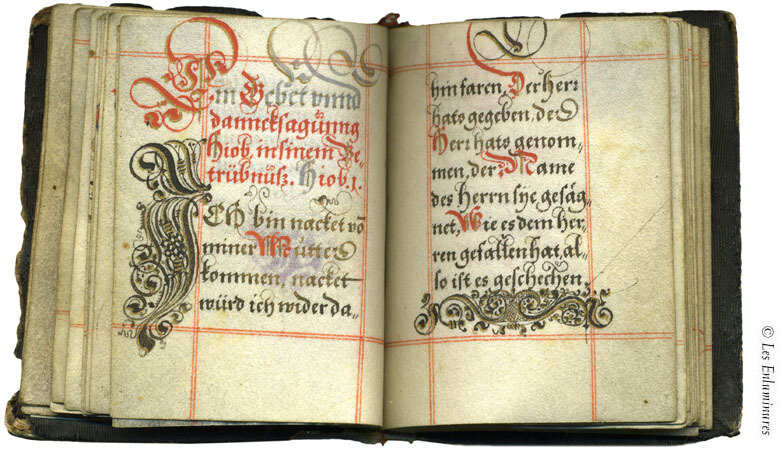 Ein Gebet vnnd
dancksagŭnng
Hiob, in sinem Be-
trübnŭsz. Hiob. 1.
ICH bin nacket vō
miner Mŭtter
kommen, nacket
würd ich wider da-
hin faren, Der herr
hats gegeben, der
Herr hats genom-
men, der Name
des Herrn sye gesäg-
net, Wie es dem her-
ren gefallen hat, al-
so ist es geschechen.
© Les Enluminures